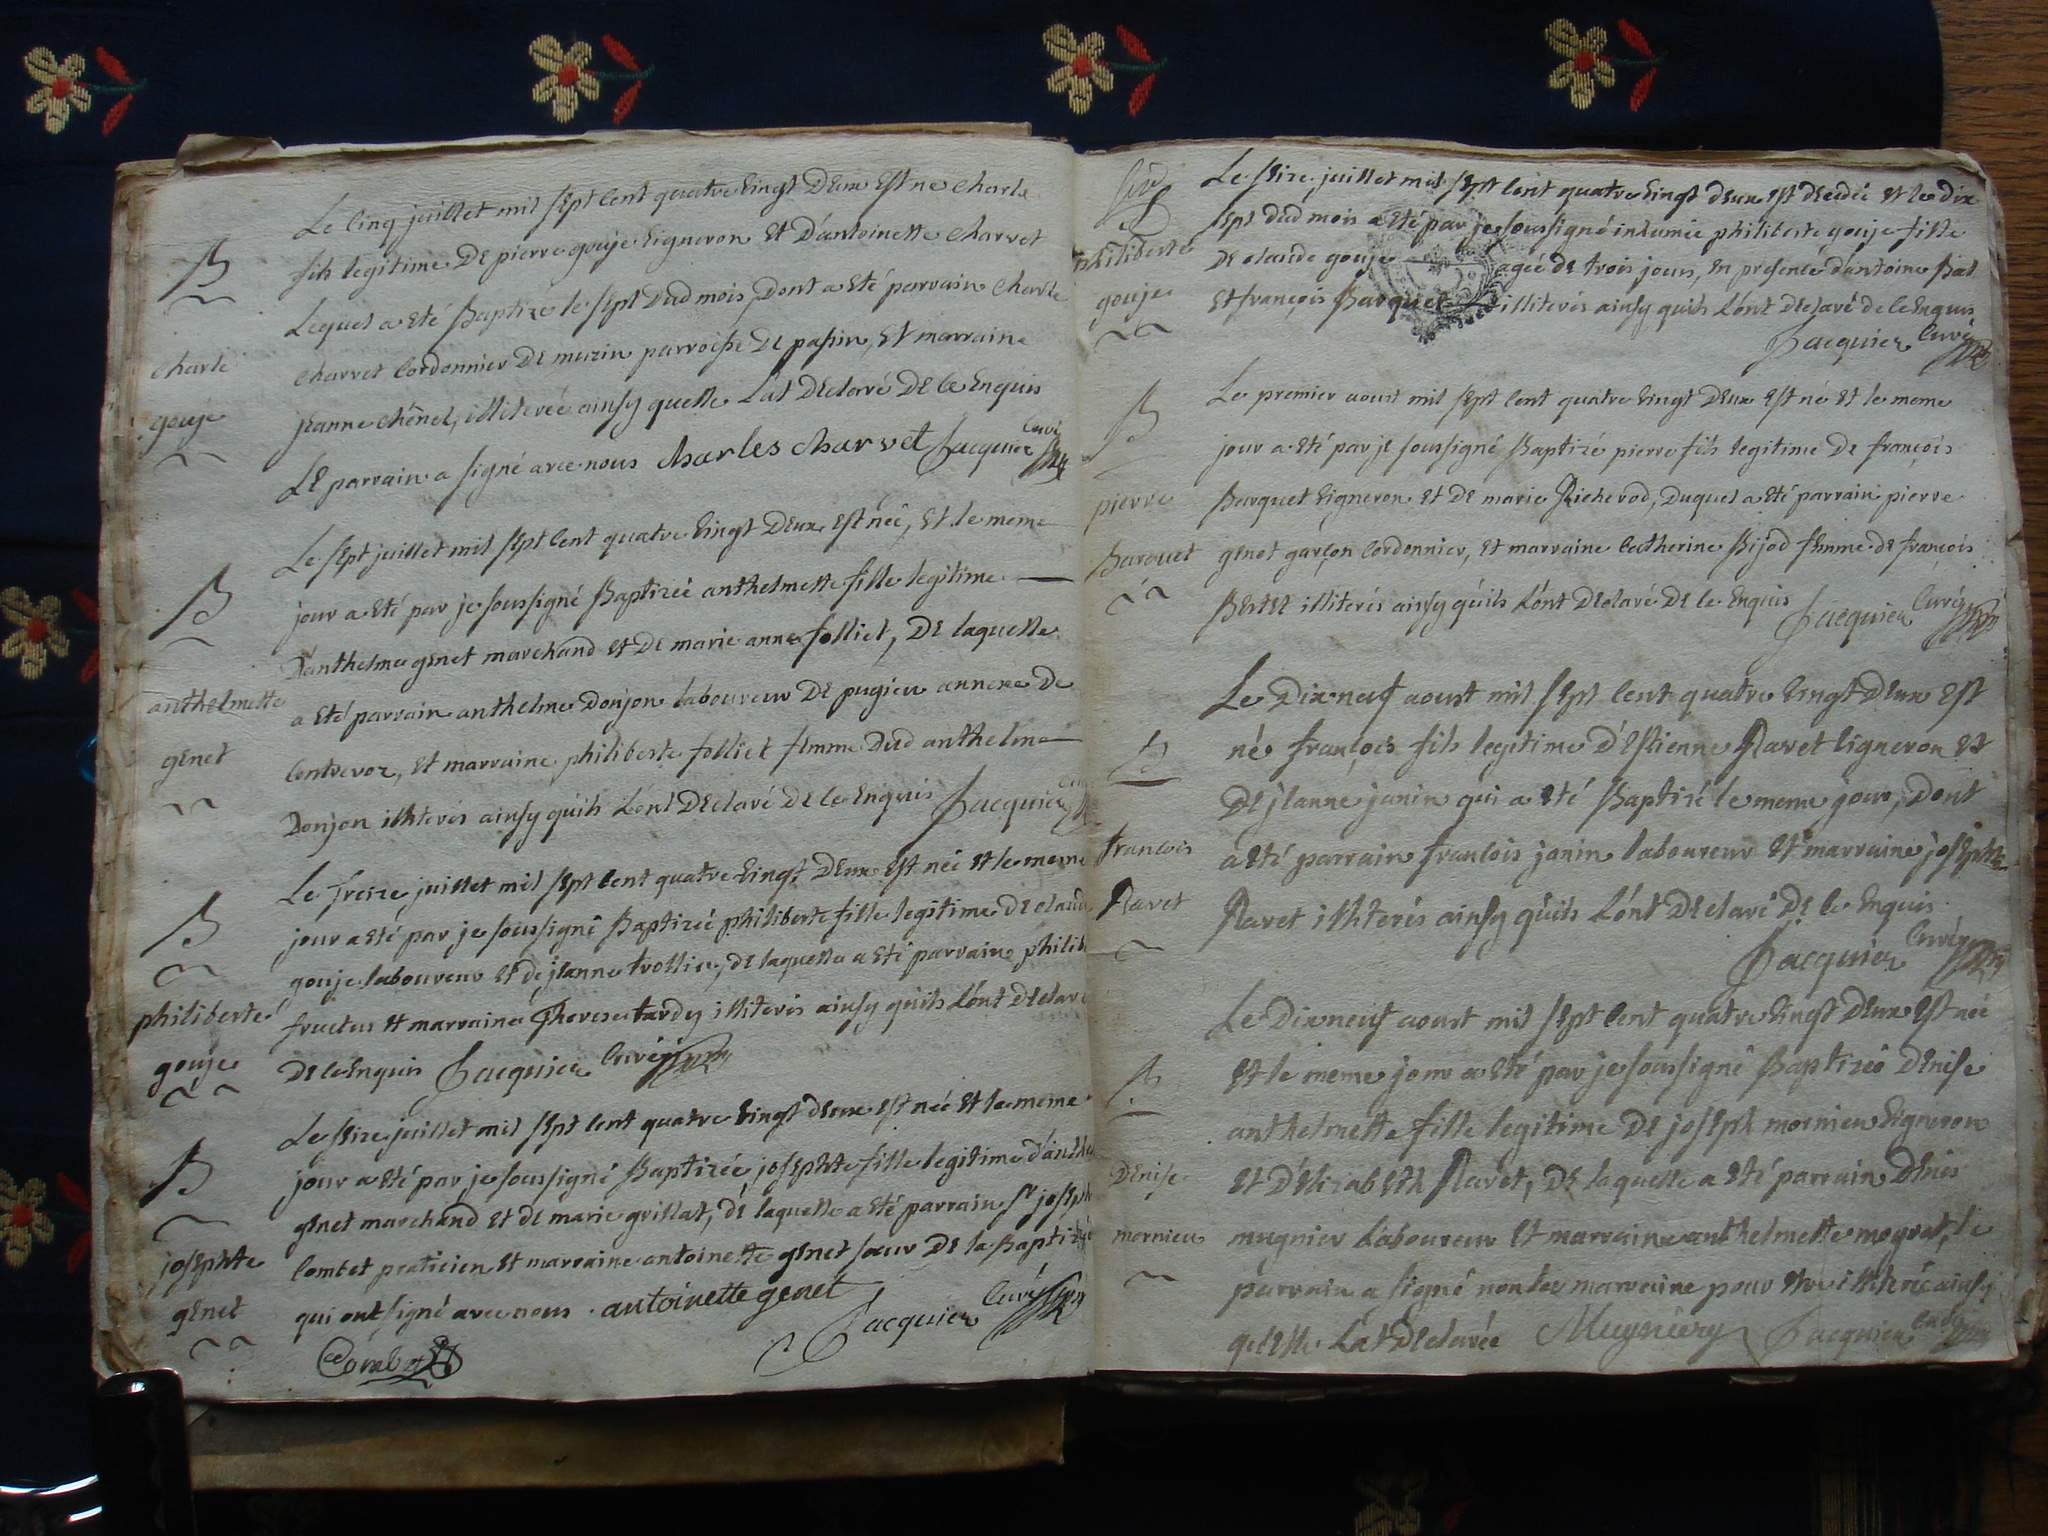 Le cinq juillet mil sept cent quatre vingt deux est ne charle
B
fils legitime de pierre gouje vigneron et d'antoinette charvet
lequel a eté baptize le sept dud mois, dont a eté parrain charle
charle
charvet cordonnier de muzin parroisse de pasin, et marraine
gouje
jeanne chênel, illiterée ainsy quelle l'at declaré de ce enquis
le parrain a signé avec nous charles charvet Jacquier curé
Le sept juillet mil sept cent quatre vingt deux est née, et le meme
B
jour a eté par je soussigné baptizée anthelmette fille legitime
d'anthelme genet marchand et de marie anne folliet, de laquelle
anthelmette
a eté parrain anthelme donjon laboureur de pugieu annexe de
genet
contrevoz, et marraine philiberte folliet femme dud anthelme
donjon illiterés ainsy quils l'ont declaré de ce enquis Jacquier curé
Le treize juillet mil sept cent quatre vingt deux est née et le meme
B
jour a eté par je soussigné baptizée philiberte fille legitime de claude
gouje laboureur et de jeanne trollier, de laquelle a eté parrain philib
philiberte
fructus et marraine therese tardy illiterés ainsy quils l'ont declaré
gouje
de ce enquis Jacquier curé
Le seize juillet mil sept cent quatre vingt deux est née et le meme
B
jour a eté par je soussigné baptizée josephte fille legitime d'anthe
genet marchand et de marie grillat, de laquelle a eté parrain sr joseph
josephte
combet praticien et marraine antoinette genet soeur de la baptizée
genet
qui ont signé avec nous antoinette genet Jacquier curé
Combet
Le seize juillet mil sept cent quatre vingt deux est decedée et le dix
sept dud mois a eté par je soussigné inhumée philiberte gouje fille
philiberte
de claude gouje agée de trois jours, en presence d'antoine Bal
gouje
et françois Barquet illiterés ainsy quils l'ont declaré de ce enquis
Jacquier curé
Le premier aoust mil sept cent quatre vingt deux est né et le meme
B
jour a eté par je soussigné baptizé pierre fils legitime de françois
pierre
Barquet vigneron et de marie Richerod, duquel a eté parrain pierre
Barquet
genet garçon cordonnier, et marraine catherine Bijod femme de françois
Bertet illiterés ainsy quils l'ont declaré de ce enquis Jacquier curé
Le dixneuf aoust mil sept cent quatre vingt deux est
B
né françois fils legitime d'estienne Ravet vigneron et
de jeanne janin qui a eté baptizé le meme jour, dont
françois
a eté parrain françois janin laboureur et marraine josephte
Ravet
Ravet illiterés ainsy quils l'ont declaré de ce enquis
Jacquier curé
Le dixneuf aoust mil sept cent quatre vingt deux est née
B
et le meme jour a eté par je soussigné baptizée denise
anthelmette fille legitime de joseph mornieu vigneron
denise
et d'elizabeth Ravet, de laquelle a eté parrain denis
mornieu
mugnier laboureur et marraine anthelmette moyret, le
parrain a signé non la marraine pour etre illiterée ainsy
quelle l'at declarée Mugniery Jacquier curé